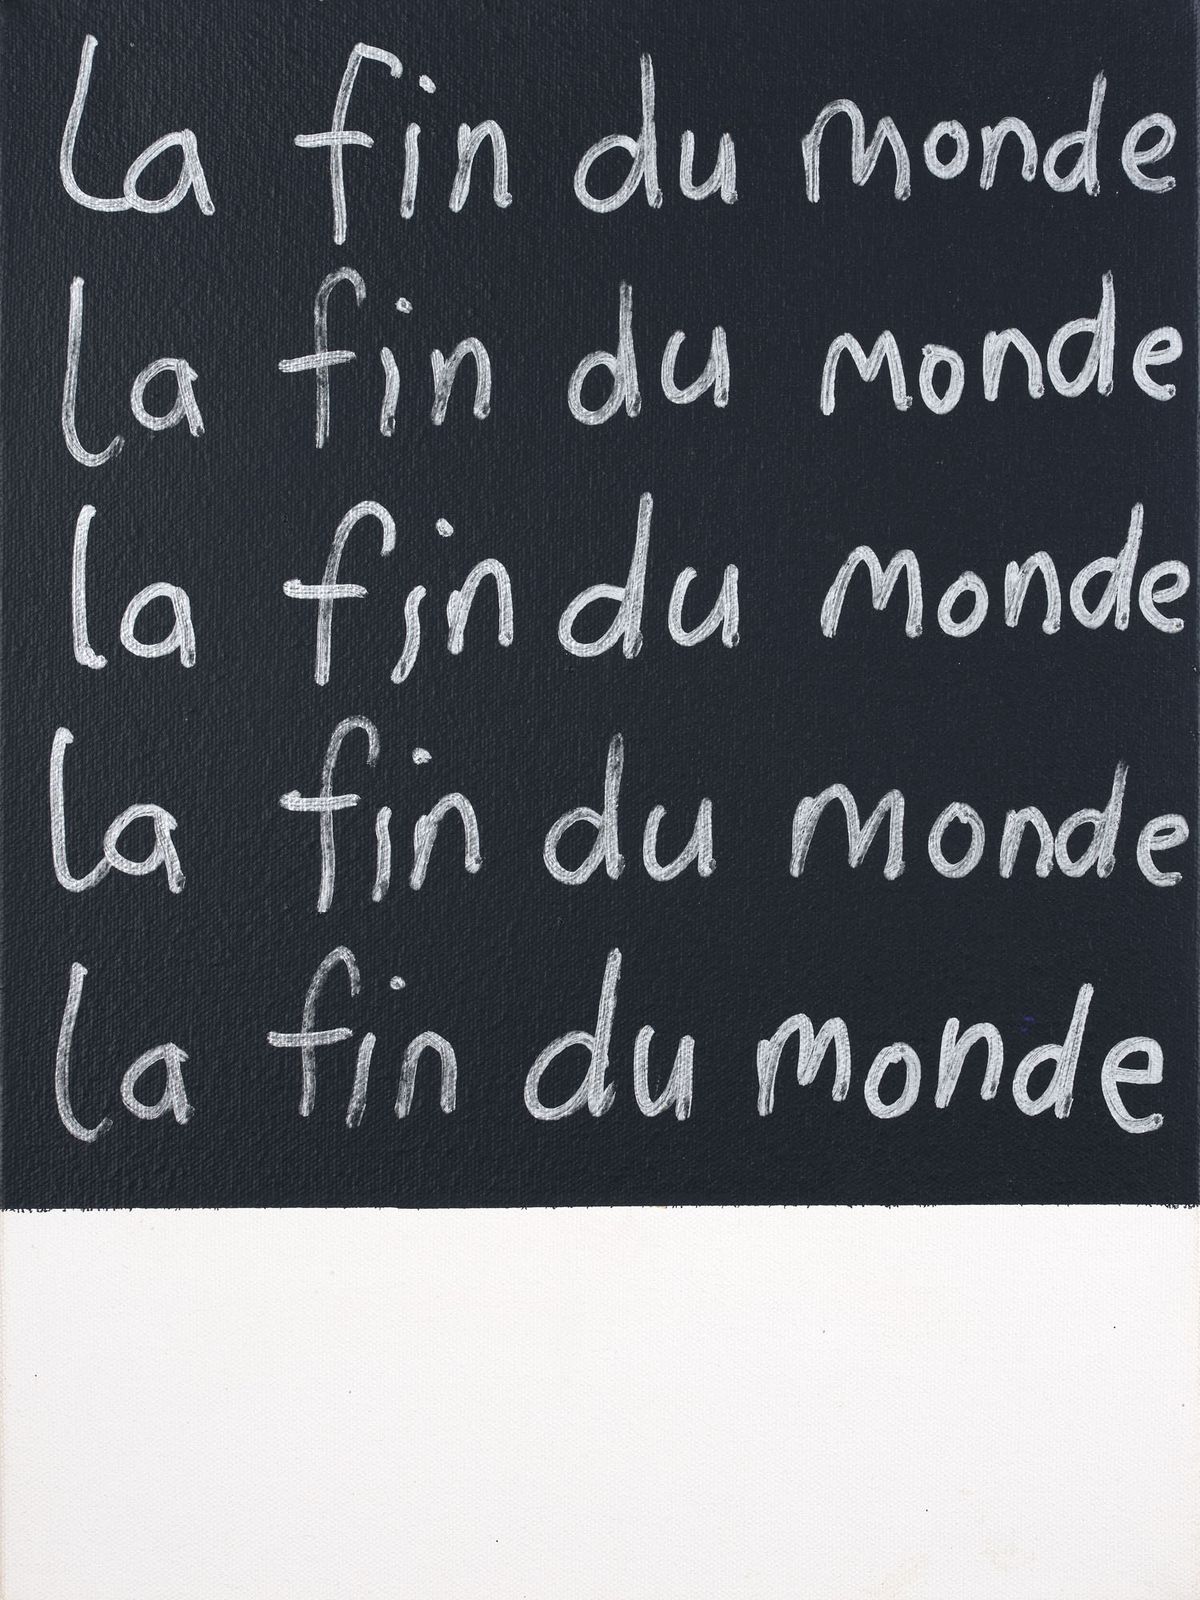 la fin du monde
la fin du monde
la fin du monde
la fin du monde
la fin du monde